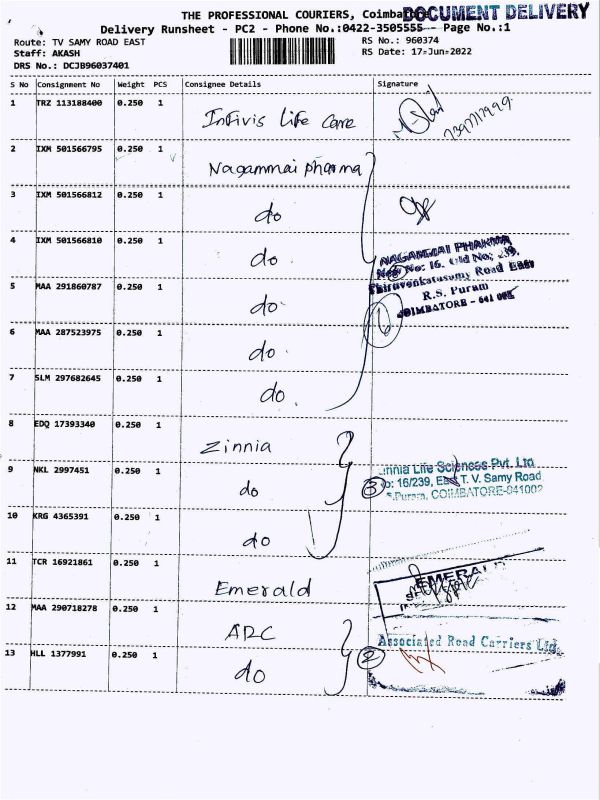 THE PROFESSIONAL COURIERS, Coimba
DOCUMENT DELIVERY
Delivery Runsheet - PC2 - Phone No.:0422-3505555 - Page No.:1
Route: TV SAMY ROAD EAST
RS No.: 960374
Staff: AKASH
RS Date: 17-Jun-2022
DRS No.: DCJB96037401
S No Consignment No Weight PCS Consignee Details Signature
1 TRZ 113188400 0.250 1
Infivis Life Care
2 IXM 501566795 0.250 1
Nagammai pharma
3 IXM 501566812 0.250 1
do
4 IXM 501566810 0.250 1
do
NAGAMMAI PHARMA
New No: 16, Old No; 239,
Thiruvenkatasamy Road East
R.S. Puram
COIMBATORE - 641 002
5 MAA 291860787 0.250 1
do
6
6 MAA 287523975 0.250 1
do
7 SLM 297682645 0.250 1
do
8 EDQ 17393340 0.250 1
Zinnia
9 NKL 2997451 0.250 1
do
3
Zinnia Life Sciences Pvt. Ltd
No: 16/239, East T. V. Samy Road
R.S.Puram, COIMBATORE-641002
10 KRG 4365391 0.250 1
do
11 TCR 16921861 0.250 1
Emerald
EMERALD
12 MAA 290718278 0.250 1
ARC
Associated Road Carriers Ltd.
13 HLL 1377991 0.250 1
do
2